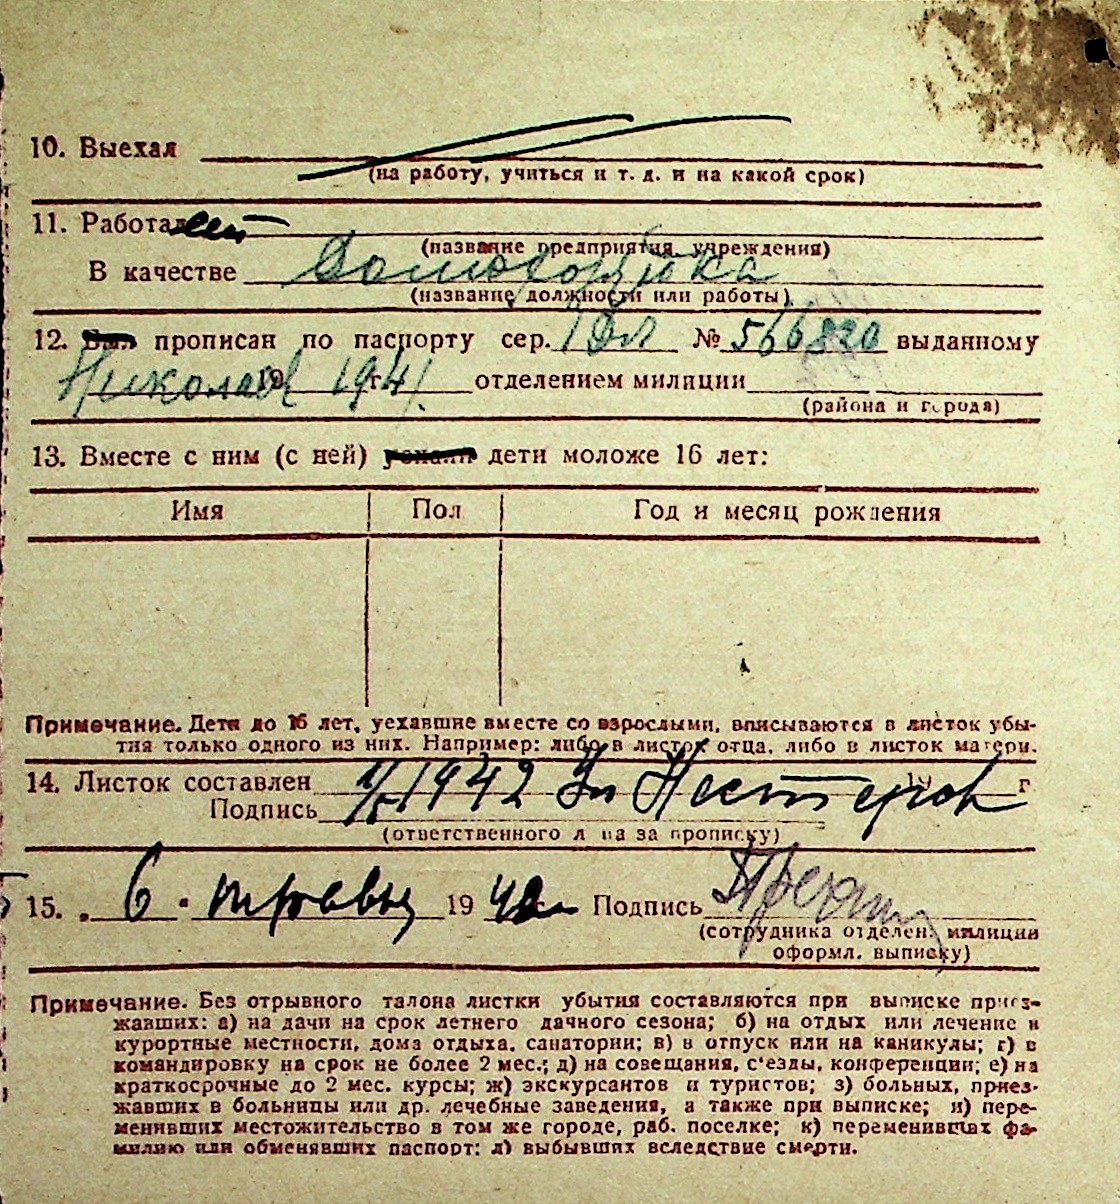 10. Выехал
(на работу, учиться и т. д. и на какой срок)
11. Работает
(название предприятия, учреждения)
В качестве Домохозяйка
(название должности или работы)
12. Был прописан по паспорту сер. № 566820 выданному
Николаев 1941 г. отделением милиции
(района и города)
13. Вместе с ним (с ней) уехали дети моложе 16 лет:
Имя Пол Год и месяц рождения
Примечание. Дети до 16 лет, уехавшие вместе со взрослыми, вписываются в листок убы-
тия только одного из них. Например: либо в листок отца, либо в листок матери.
14. Листок составлен 1942 19 г
Подпись Нестеров
(ответственного лица за прописку)
15. 6 травня 1942 Подпись
(сотрудника отделен. милиции
оформл. выписку)
Примечание. Без отрывного талона листки убытия составляются при выписке приез-
жавших: а) на дачи на срок летнего дачного сезона; б) на отдых или лечение в
курортные местности, дома отдыха, санатории; в) в отпуск или на каникулы; г) в
командировку на срок не более 2 мес.; д) на совещания, с'езды, конференции; е) на
краткосрочные до 2 мес. курсы; ж) экскурсантов и туристов; з) больных, приез-
жавших в больницы или др. лечебные заведения, а также при выписке; и) пере-
менивших местожительство в том же городе, раб. поселке; к) переменивших фа-
милию или обменявших паспорт; л) выбывших вследствие смерти.